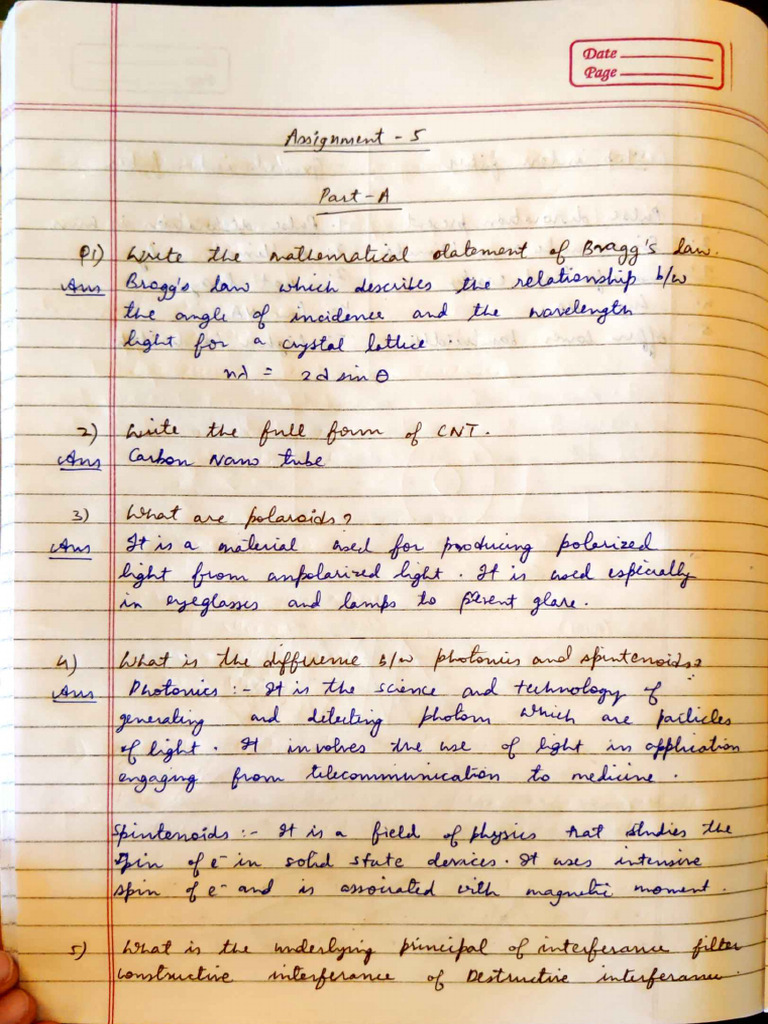 Date
Page
Assignment - 5
Part - A
Q1) Write the mathematical statement of Bragg's law.
Ans Bragg's law which describes the relationship b/w
the angle of incidence and the wavelength
light for a crystal lattice.
nλ = 2d sin θ
2) Write the full form of CNT.
Ans Carbon Nano tube
3) What are polaroids?
Ans It is a material used for producing polarized
light from unpolarized light. It is used especially
in eyeglasses and lamps to prevent glare.
4) What is the difference b/w photonics and spintenoids?
Ans Photonics :- It is the science and technology of
generating and detecting photon which are particles
of light. It involves the use of light in application
engaging from telecommunication to medicine.
Spintenoids :- It is a field of physics that studies the
spin of e- in solid state devices. It uses intensive
spin of e- and is associated with magnetic moment.
5) What is the underlying principal of interferance filter
constructive interferance of Destructive interferance.